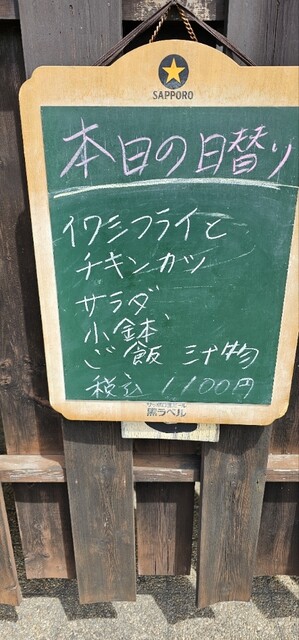 SAPPORO
本日の日替り
イワシフライと
チキンカツ
サラダ
小鉢
ご飯 汁物
税込 1100円
サッポロ生ビール
黒ラベル